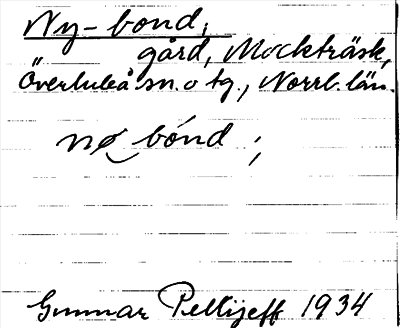 Ny-bond,
gård, Mockträsk,
Överluleå sn. o tg., Norrb. län.
nø bónd ;
Gunnar Pellijeff 1934